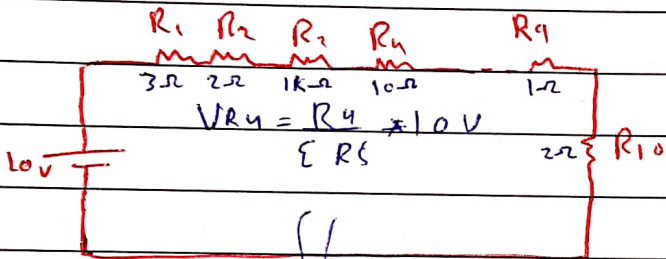 R1 R2 R3 R4 R9
3Ω 2Ω 1KΩ 10Ω 1Ω
VR4 = R4 * 10V
Σ RS
10v 2Ω R10